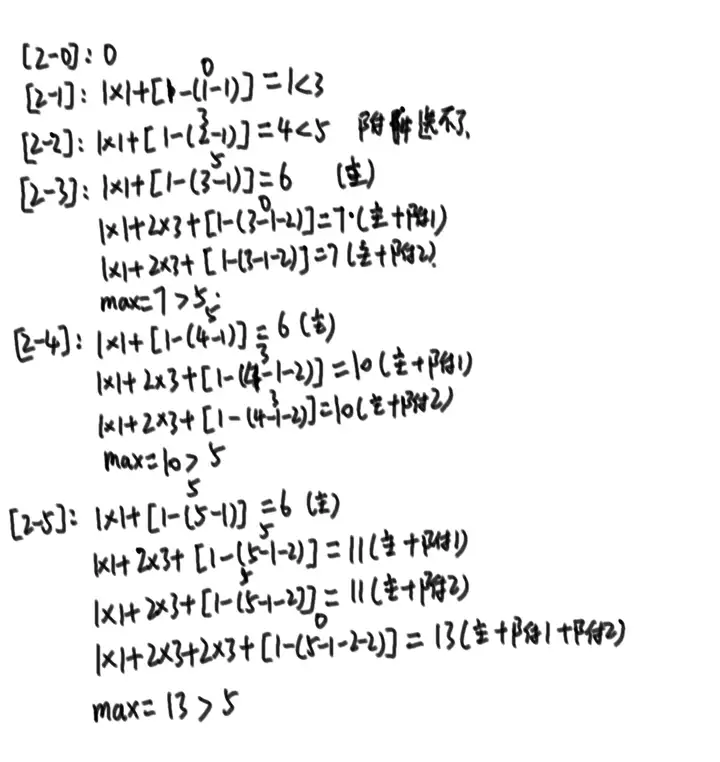 [2-0]: 0
[2-1]: 1×1+[1-(1-1)]=1<3
0
[2-2]: 1×1+[1-(2-1)]=4<5 附件送不了
3
[2-3]: 1×1+[1-(3-1)]=6 (主)
5
1×1+2×3+[1-(3-1-2)]=7 (主+附1)
0
1×1+2×3+[1-(3-1-2)]=7 (主+附2)
max=7>5
[2-4]: 1×1+[1-(4-1)]=6 (主)
5
1×1+2×3+[1-(4-1-2)]=10 (主+附1)
3
1×1+2×3+[1-(4-1-2)]=10 (主+附2)
3
max=10>5
[2-5]: 1×1+[1-(5-1)]=6 (主)
5
1×1+2×3+[1-(5-1-2)]=11 (主+附1)
5
1×1+2×3+[1-(5-1-2)]=11 (主+附2)
5
1×1+2×3+2×3+[1-(5-1-2-2)]=13 (主+附1+附2)
0
max=13>5